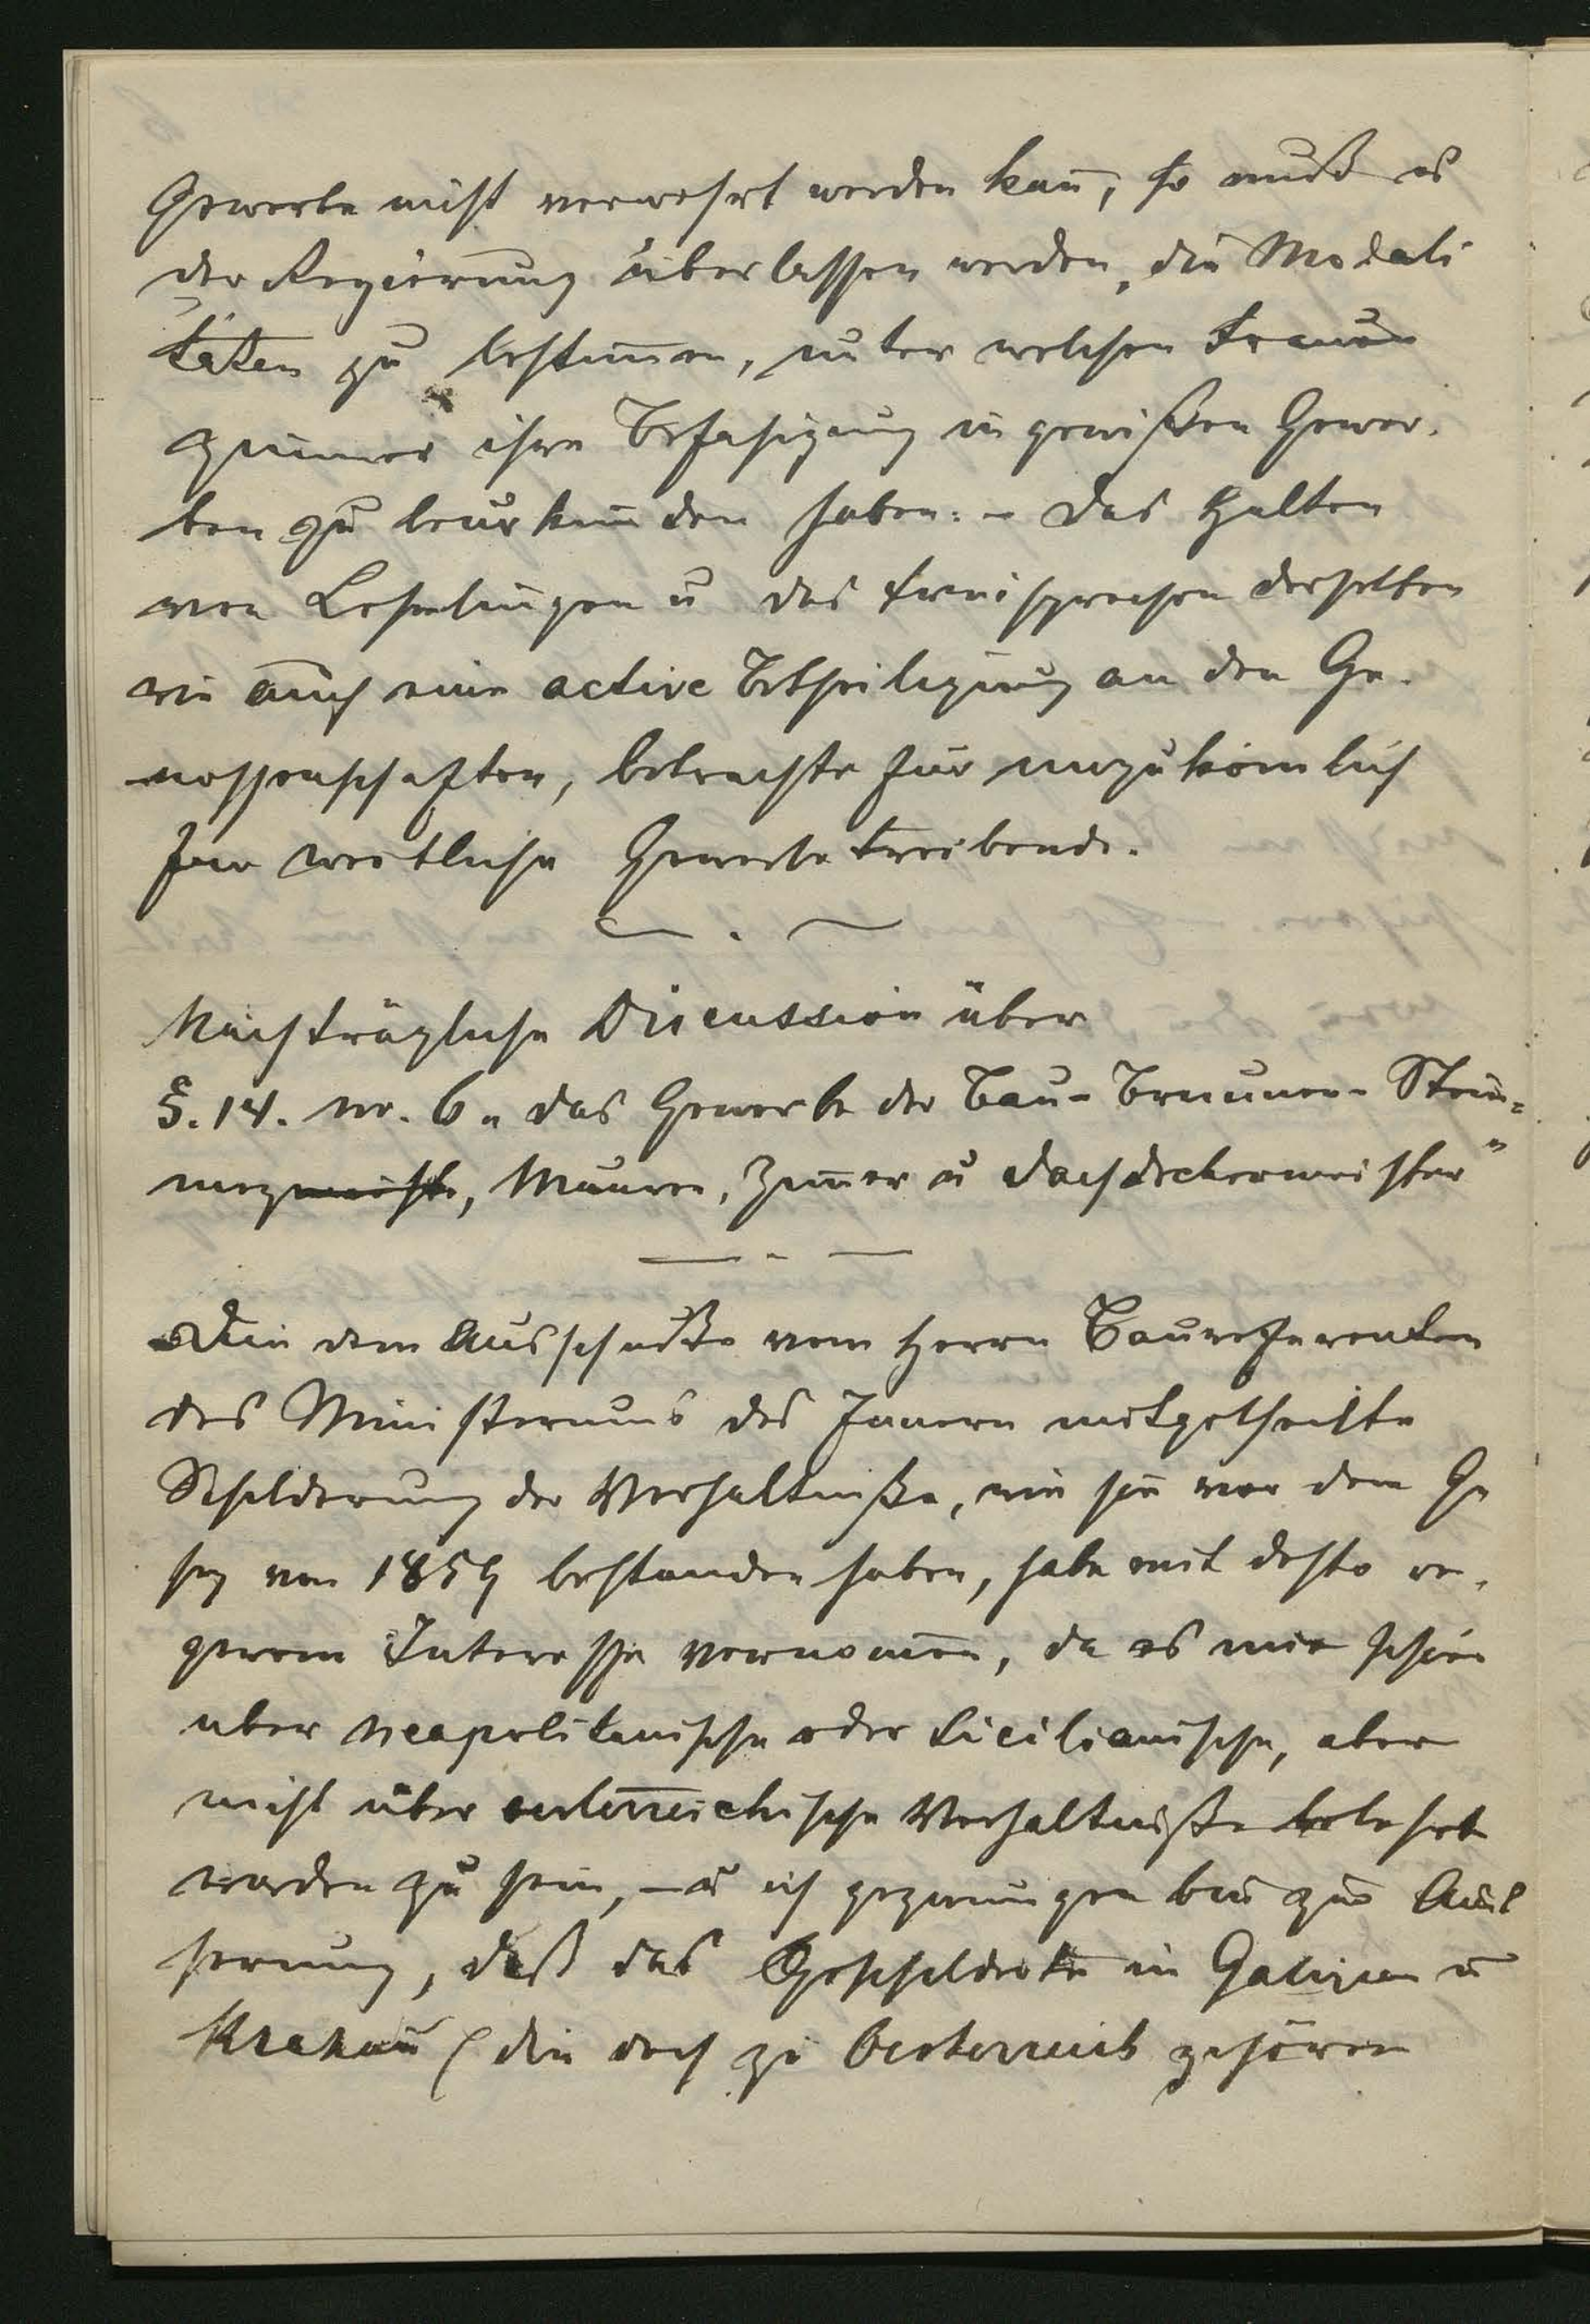 Gewerbe nicht verwehrt werden kan̄, so muß es
der Regierung überlassen werden, die Modali
täten zu bestim̄en, unter welchen Frauen
zimmer ihre Befähigung in gewißen Gewer-
ben zu beurkunden haben. – Das Halten
von Lehrlingen u das Freisprechen derselben
wie auch eine active Betheiligung an den Ge-
nossenschaften, betrachte für unzukömlich
für weibliche Gewerbetreibende.
Nachträgliche Discussion über
§. 14. nr. 6 „ das Gewerbe der Bau- Brunnen- Stein-
metz, Maurer, Zim̄er u Dachdeckermeister"
Die dem Ausschuße vom Herrn Baureferenten
des Ministeriums des Innern mitgetheilte
Schilderung der Verhältniße, wie sie vor dem Ge
setz von 1859 bestanden haben, habe mit desto re-
gerem Interesse vernom̄en, da es mir schien
über neapolitanische oder sicilianische, aber
nicht über oesterreichische Verhältniße belehrt
worden zu sein, – u ich gezwungen bin zur Aeus
serung, daß das Geschilderte in Galizien u
Krakau (die doch zu Oesterreich gehören